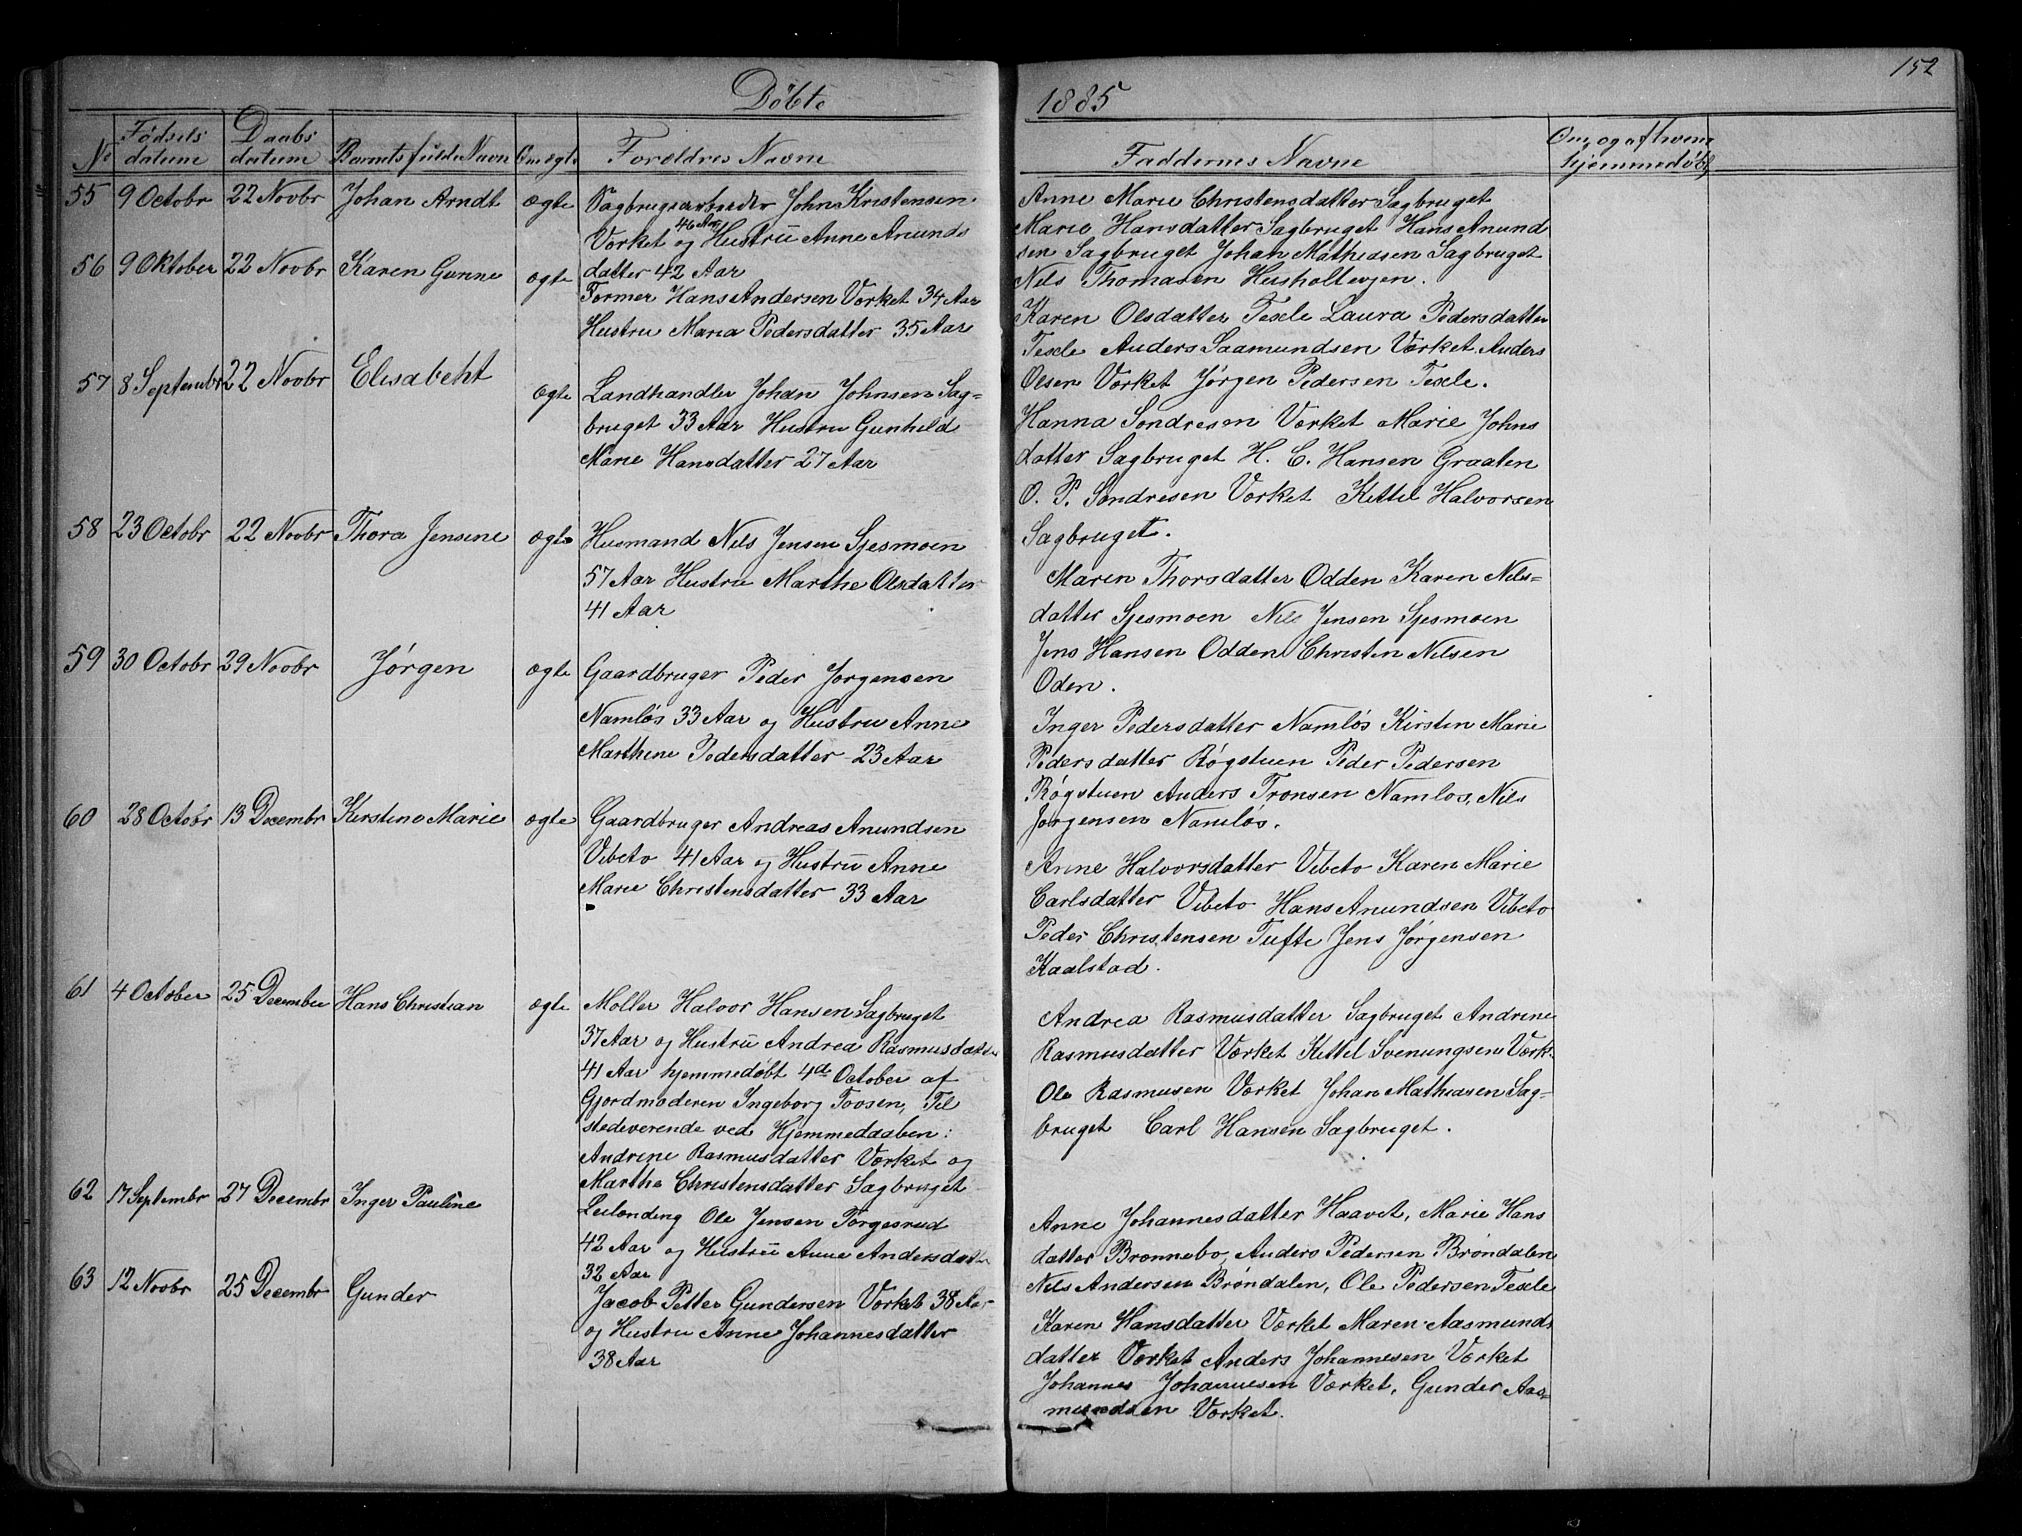 152
Döbte
1885
No
Fødsels datum
Daabs datum
Barnets fulde Navn
Om ægte
Forældres Navne
Faddernes Navne
Om, og af hvem hjemmedøbt
55 9 Octobr 22 Novbr Johan Arndt ægte
Sagbrugsarbeider John Kristensen
46 Aar
Værket og Hustrü Anne Anunds
datter 42 Aar
Anne Marie Christensdatter Sagbruget
Marie Hansdatter Sagbruget Hans Anund
sen Sagbruget Johan Mathiasen Sagbruget
Nils Thomasen Husholtevjen.
56 9 Oktober 22 Novbr Karen Gunne ægte
Former Hans Andersen Værket 34 Aar
Hustru Maria Pedersdatter 35 Aar
Karen Olsdatter Texle Laura Pedersdatter
Texle Anders Saamundsen Værket Anders
Olsen Værket Jørgen Pedersen Texle.
57 8 Septembr 22 Novbr Elisabeht ægte
Landhandler Johan Johnsen Sag=
bruget 33 Aar Hustru Gunhild
Marie Hansdatter 27 Aar
Hanna Sondresen Værket Marie Johns
datter Sagbruget H. C. Hansen Graaten
O. P. Sondresen Værket Kittil Halvorsen
Sagbruget.
58 23 Octobr 22 Novbr Thora Jensine ægte
Husmand Nils Jensen Sjesmoen
57 Aar Hustru Marthe Olsdatter
41 Aar
Maren Thorsdatter Odden Karen Nils=
datter Sjesmoen Nils Jensen Sjesmoen
Jens Hansen Odden Christen Nilsen
Oden.
59 30 Octobr 29 Novbr Jørgen ægte
Gaardbruger Peder Jørgensen
Namløs 33 Aar og Hustru Anne
Marthine Pedersdatter 23 Aar
Inger Pedersdatter Namløs Kirsten Marie
Pedersdatter Bøgstuen Peder Pedersen
Bøgstuen Anders Tronsen Namløs, Nils
Jørgensen Namløs.
60 28 Octobr 13 Decembr Kirstine Marie ægte
Gaardbruger Andreas Anundsen
Vibeto 41 Aar og Hustrü Anne
Marie Christensdatter 33 Aar
Anne Halvorsdatter Vibeto Karen Marie
Carlsdatter Vibeto Hans Anundsen Vibeto
Peder Christensen Tufte Jens Jørgensen
Kaalstad.
61 4 October 25 December Hans Christian ægte
Møller Halvor Hansen Sagbruget
37 Aar og Hustrü Andrea Rasmusdatter
41 Aar hjemmedøbt 4de October af
Gjordmoderen Ingeborg Tovsen, Til
stedeverende ved Hjemmedaaben:
Andrine Rasmusdatter Værket og
Marthe Christensdatter Sagbruget
Andrea Rasmusdatter Sagbruget Andrine
Rasmusdatter Værket Kittil Svenungsen Værk.
Ole Rasmusen Værket Johan Mathiasen Sag=
bruget Carl Hansen Sagbruget.
62 17 Septembr 27 Decembr Inger Pauline
Leilænding Ole Jensen Torgesrud
42 Aar og Hustrü Anne Andersdatter
32 Aar
Anne Johannesdatter Haavet, Marie Hans
datter Brønnebo, Anders Pedersen Brøndalen
Nils Andersen Brøndalen, Ole Pedersen Texle
63 12 Novbr 25 Decembr Gunder
Jacob Petter Gundersen Værket 38 Aar
og Hustru Anne Johannesdatter
38 Aar
Karen Hansdatter Værket Maren Aasmunds
datter Værket Anders Johannesen Værket
Johannes Johannesen Værket, Gunder Aas=
mundsen Værket.